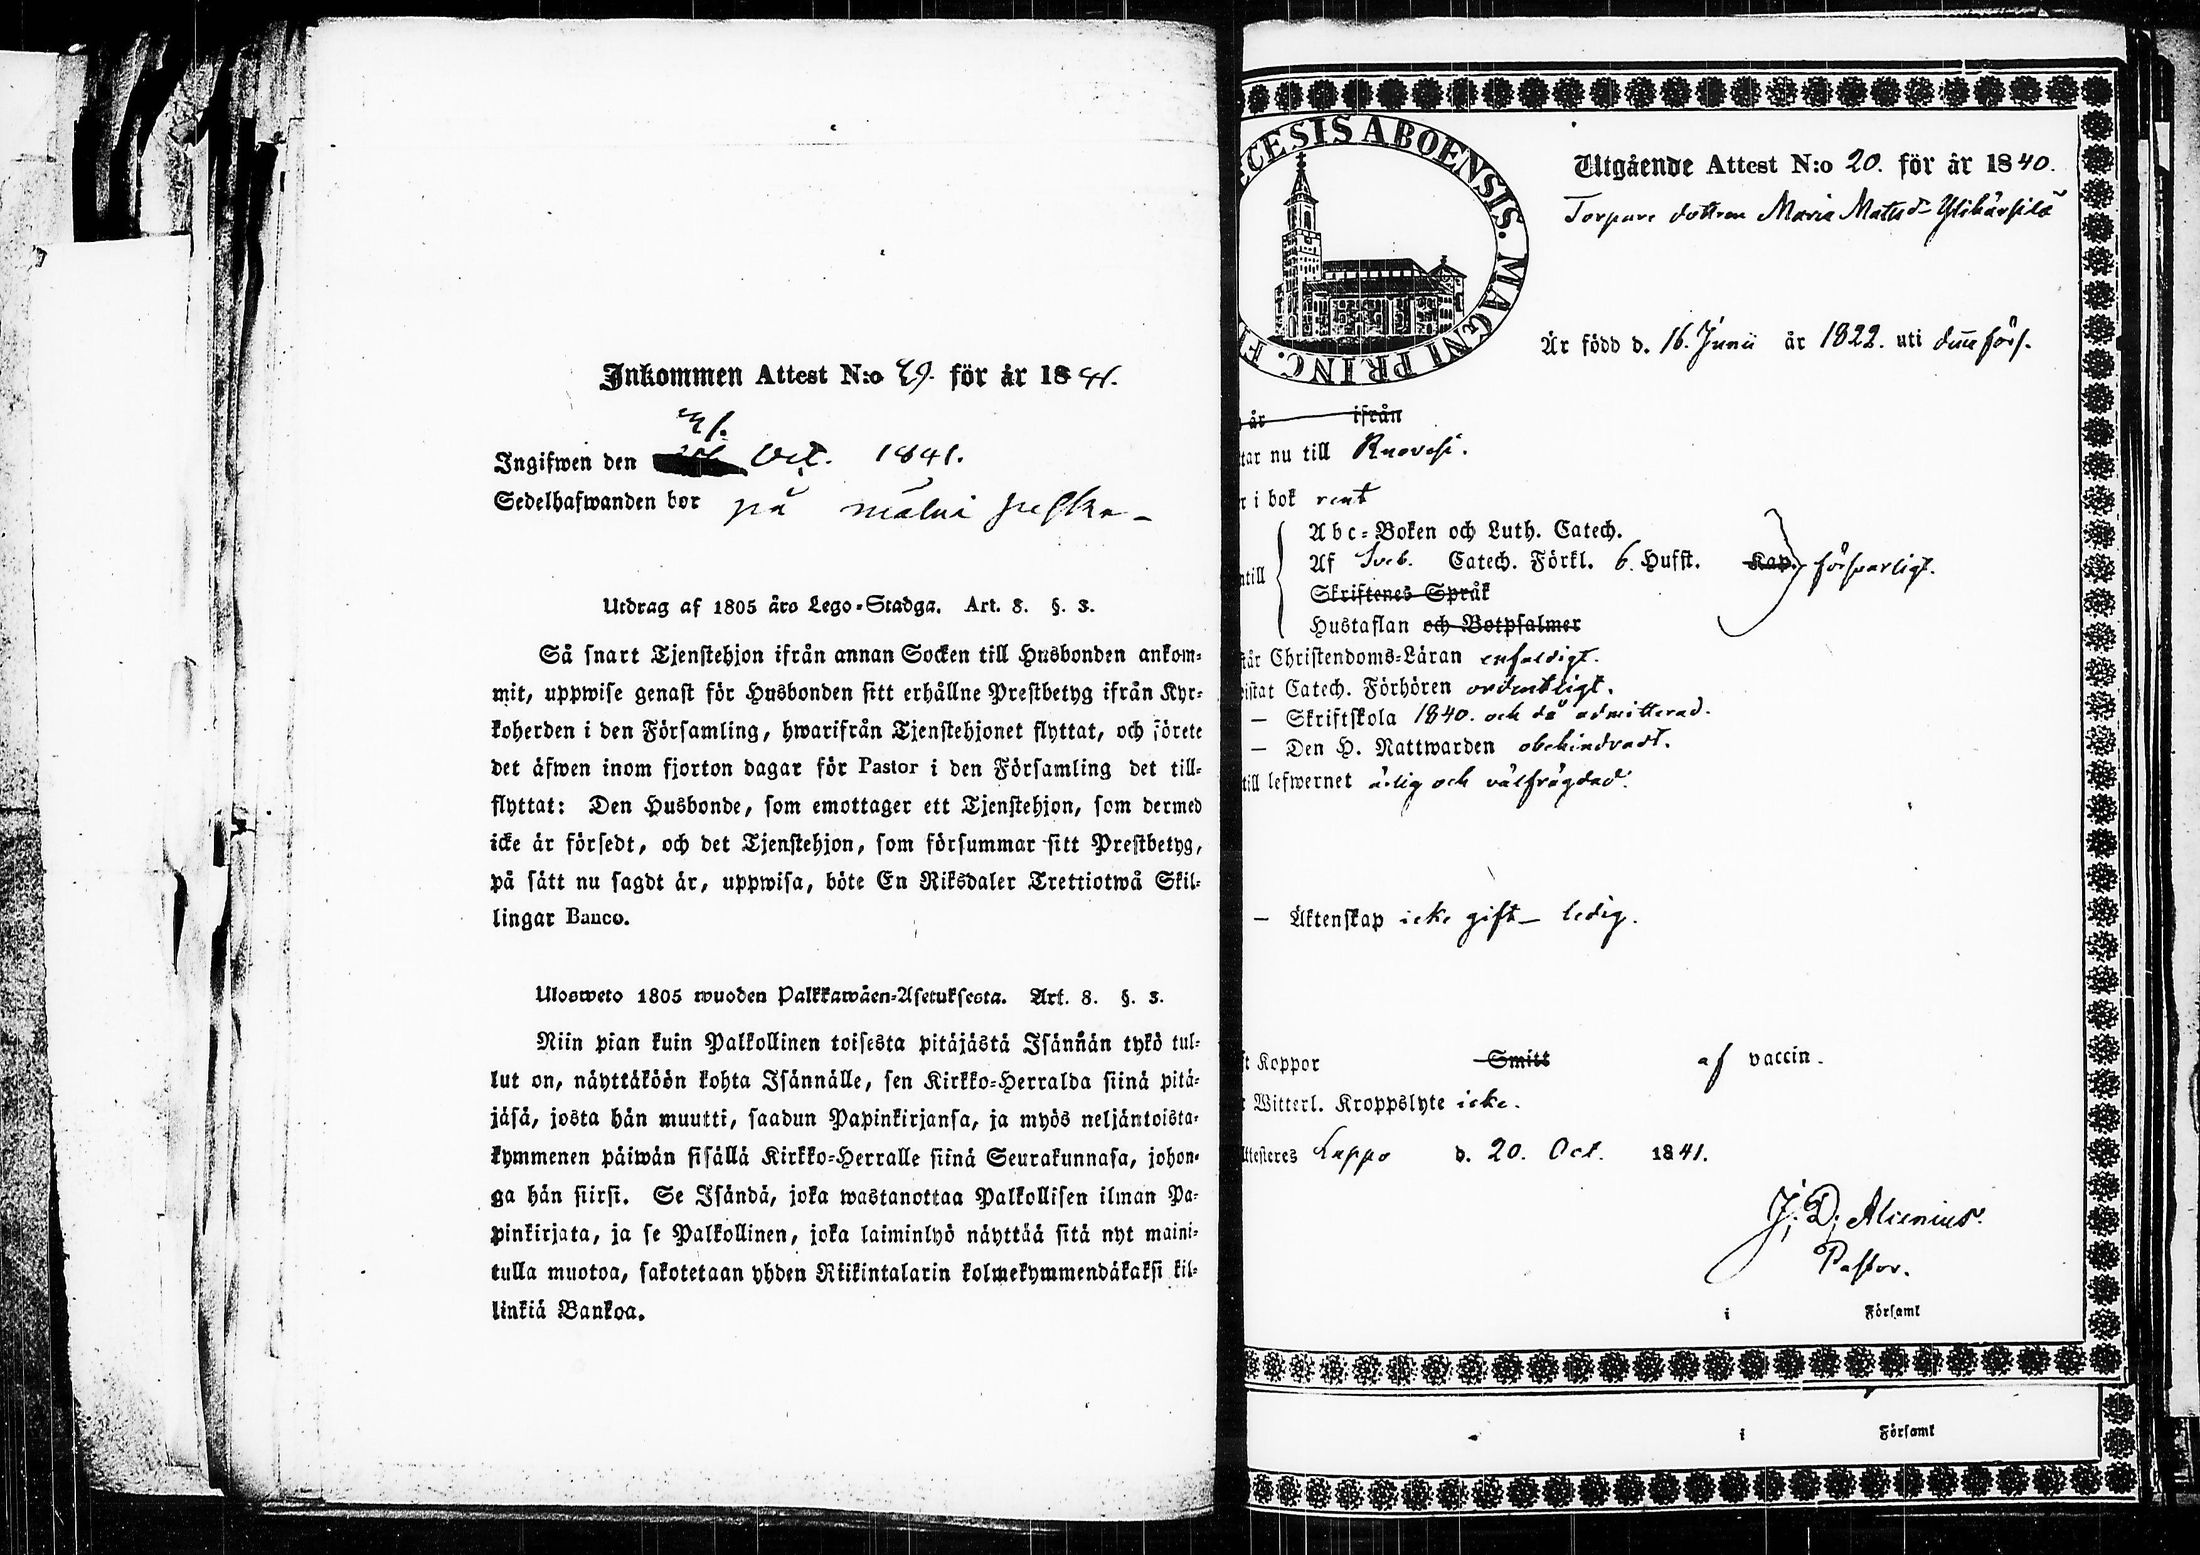 Inkommen Attest N:o 29. för år 1841.
21.
Ingifwen den Oct. 1841.
Sedelhafwanden bor på
Utdrag af 1805 års Lego-Stadga. Art. 8. §. 3.
Så snart Tjenstehjon ifrån annan Socken till Husbonden ankom-
mit, uppwise genast för Husbonden sitt erhållne Prestbetyg ifrån Kyr-
koherden i den Församling, hwarifrån Tjenstehjonet flyttat, och förete
det äfwen inom fjorton dagar för Pastor i den Församling det till-
flyttat: Den Husbonde, som emottager ett Tjenstehjon, som dermed
icke är försedt, och det Tjenstehjon, som försummar sitt Prestbetyg,
på sätt nu sagdt är, uppwisa, böte En Riksdaler Trettiotwå Skil-
lingar Banco.
Ulosweto 1805 wuoden Palkkawäen-Asetuksesta. Art. 8. §. 3.
Niin pian kuin Palkollinen toisesta pitäjästä Isännän tykö tul-
lut on, näyttäköön kohta Isännälle, sen Kirkko-Herralda siinä pitä-
jäsä, josta hän muutti, saadun Papinkirjansa, ja myös neljäntoista-
kymmenen päiwän sisällä Kirkko-Herralle siinä Seurakunnasa, johon-
ga hän siirsi. Se Isändä, joka wastanottaa Palkollisen ilman Pa-
pinkirjata, ja se Palkollinen, joka laiminlyö näyttää sitä nyt maini-
tulla muotoa, sakotetaan yhden Riikintalarin kolmekymmendäkaksi kil-
linkiä Bankoa.
CESIS ABOENSIS. MAGNI PRINC. F
Utgående Attest N:o 20. för år 1840.
Torpare dottren Maria Matsd
Är född d. 16. Junii år 1822. uti förs.
år ifrån
tar nu till Ruovesi.
i bok rent
Abc-Boken och Luth. Catech.
ntill Af Sveb. Catech. Förkl. 6. Hufst. Kap. försvarligt.
Skriftenes Språk
Hustaflan och Botpsalmer
står Christendoms-Läran enfaldigt.
vistat Catech. Förhören ordentligt.
— Skriftskola 1840. och då admitterad.
— Den H. Nattwarden obehindradt.
till lefwernet ärlig och välfrägdad.
— Äktenskap icke gift — ledig.
Koppor Smitt af vaccin.
Witterl. Kroppslyte icke.
Attesteres Lappo d. 20. Oct. 1841.
J. D. Alcenius.
Pastor.
i Församl
i Församl